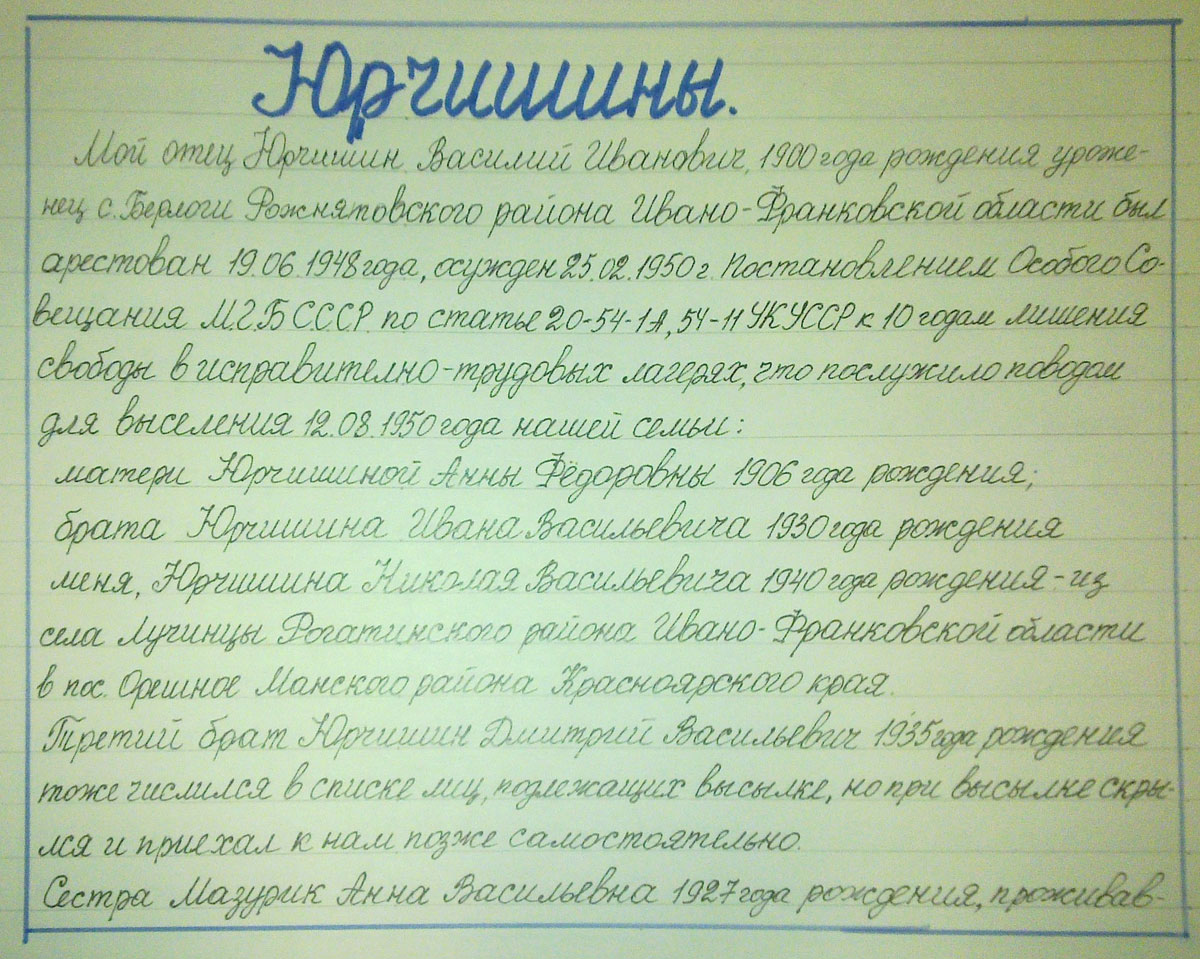 Юрчишины.
Мой отец Юрчишин Василий Иванович, 1900 года рождения уроже-
нец с. Берлоги Рожнятовского района Ивано-Франковской области был
арестован 19.06.1948 года, осужден 25.02.1950 г. Постановлением Особого Со-
вещания М.Г.Б С.С.С.Р. по статье 20-54-1А, 54-11 УКУССР к 10 годам лишения
свободы в исправително-трудовых лагерях, что послужило поводом
для выселения 12.08.1950 года нашей семьи:
матери Юрчишиной Анны Фёдоровны 1906 года рождения;
брата Юрчишина Ивана Васильевича 1930 года рождения
меня, Юрчишина Николая Васильевича 1940 года рождения - из
села Лучинцы Рогатинского района Ивано-Франковской области
в пос. Орешное Манского района Красноярского края.
Третий брат Юрчишин Дмитрий Васильевич 1935 года рождения
тоже числился в списке лиц, подлежащих высылке, но при высылке скры-
лся и приехал к нам позже самостоятельно.
Сестра Мазурик Анна Васильевна 1927 года рождения, проживав-